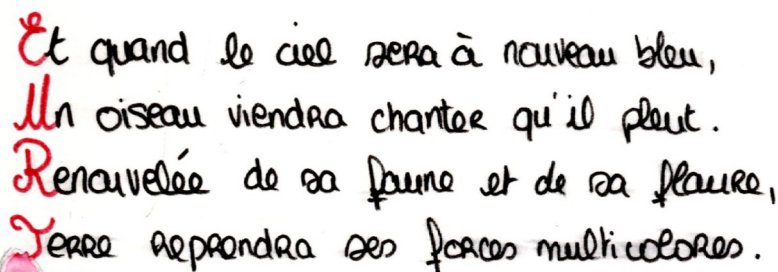 Et quand le ciel sera à nouveau bleu,
Un oiseau viendra chanter qu'il pleut.
Renouvelée de sa faune et de sa flaure,
Terre reprendra ses forces multicolores.